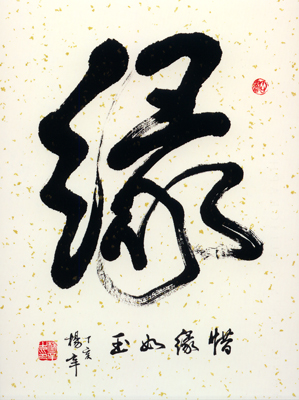 缘
惜缘如玉
丁亥
杨辛